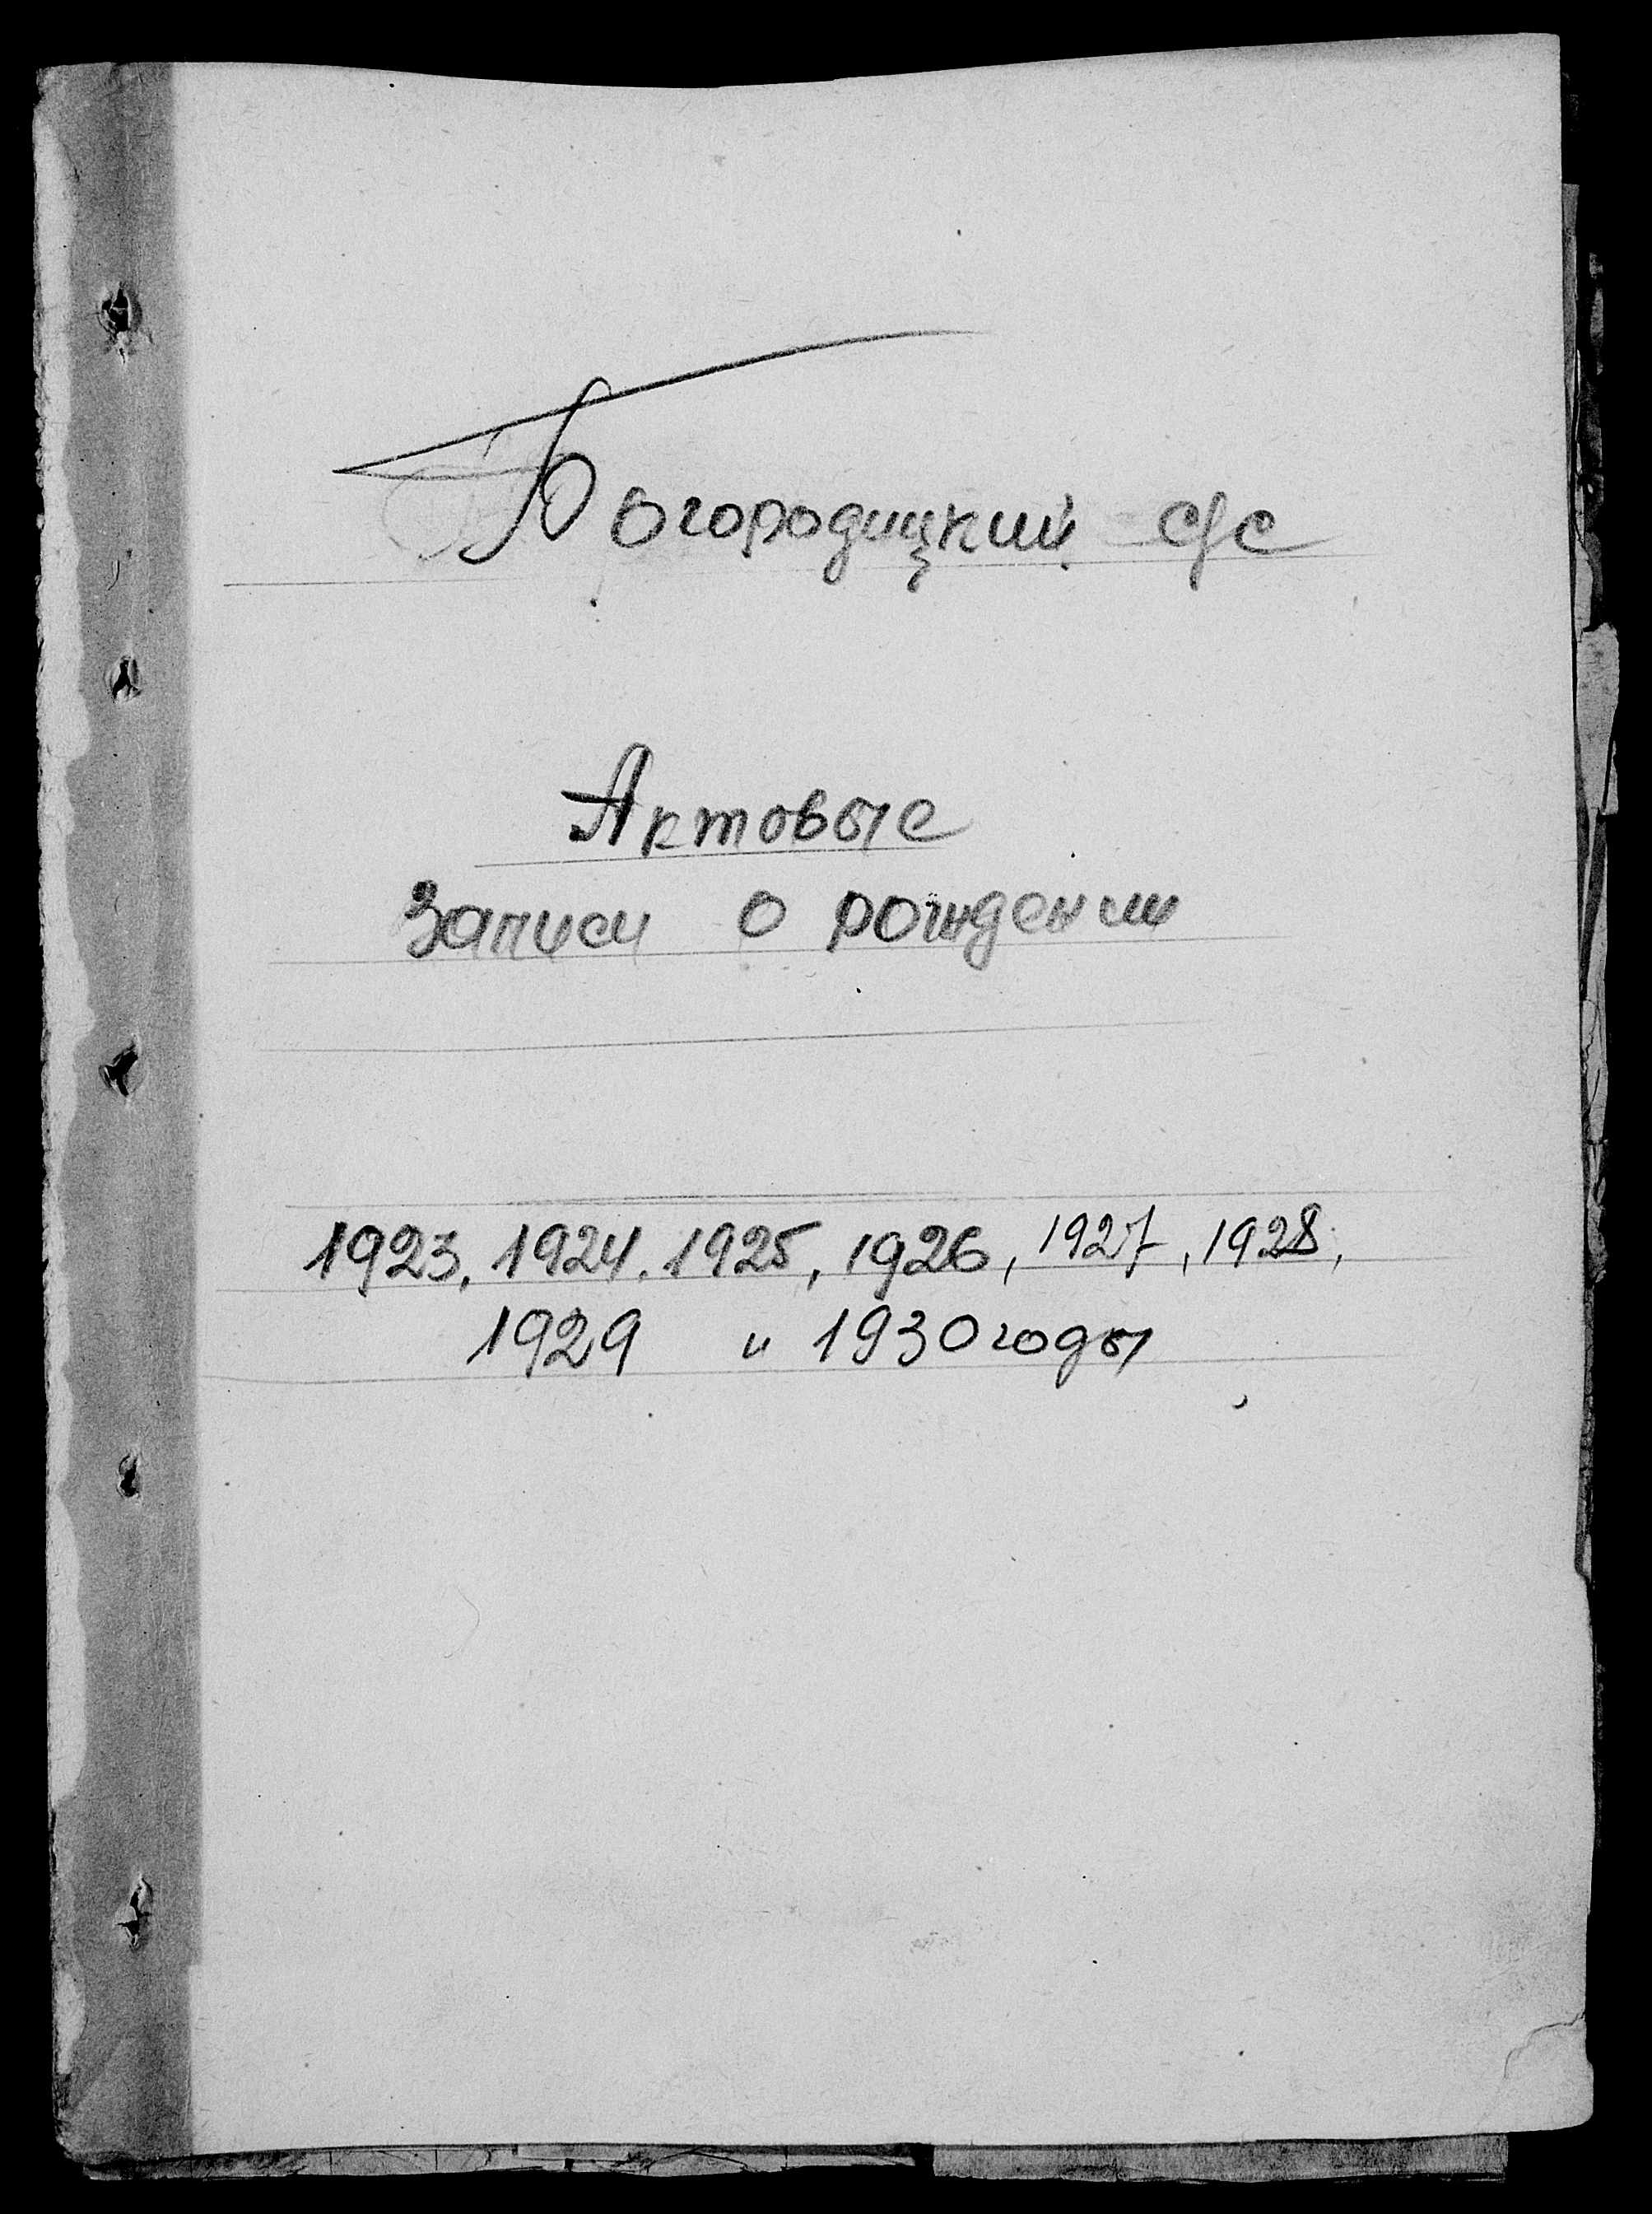 Богородицкий с/с
Актовые
Записи о рождении
1923, 1924. 1925, 1926, 1927, 1928,
1929 и 1930 годы